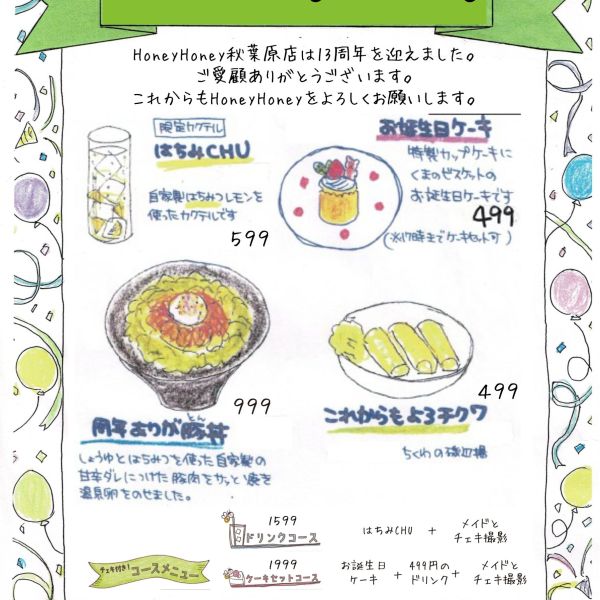 HoneyHoney秋葉原店は13周年を迎えました。
ご愛顧ありがとうございます。
これからもHoneyHoneyをよろしくお願いします。
限定カクテル
はちみCHU
自家製はちみつレモンを
使ったカクテルです
599
お誕生日ケーキ
特製カップケーキに
くまのビスケットの
お誕生日ケーキです
499
(※17時までケーキセット可)
999
周年ありが豚丼
とん
しょうゆとはちみつを使った自家製の
甘辛ダレにつけた豚肉をサッと焼き
温泉卵をのせました。
499
これからもよろチクワ
ちくわの磯辺揚
チェキ付き!
コースメニュー
1599
ドリンクコース
はちみCHU + メイドと
チェキ撮影
1999
ケーキセットコース
お誕生日
ケーキ + 499円の
ドリンク + メイドと
チェキ撮影